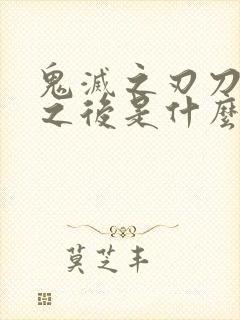 鬼滅之刃刀
之後是什麼
莫芝丰